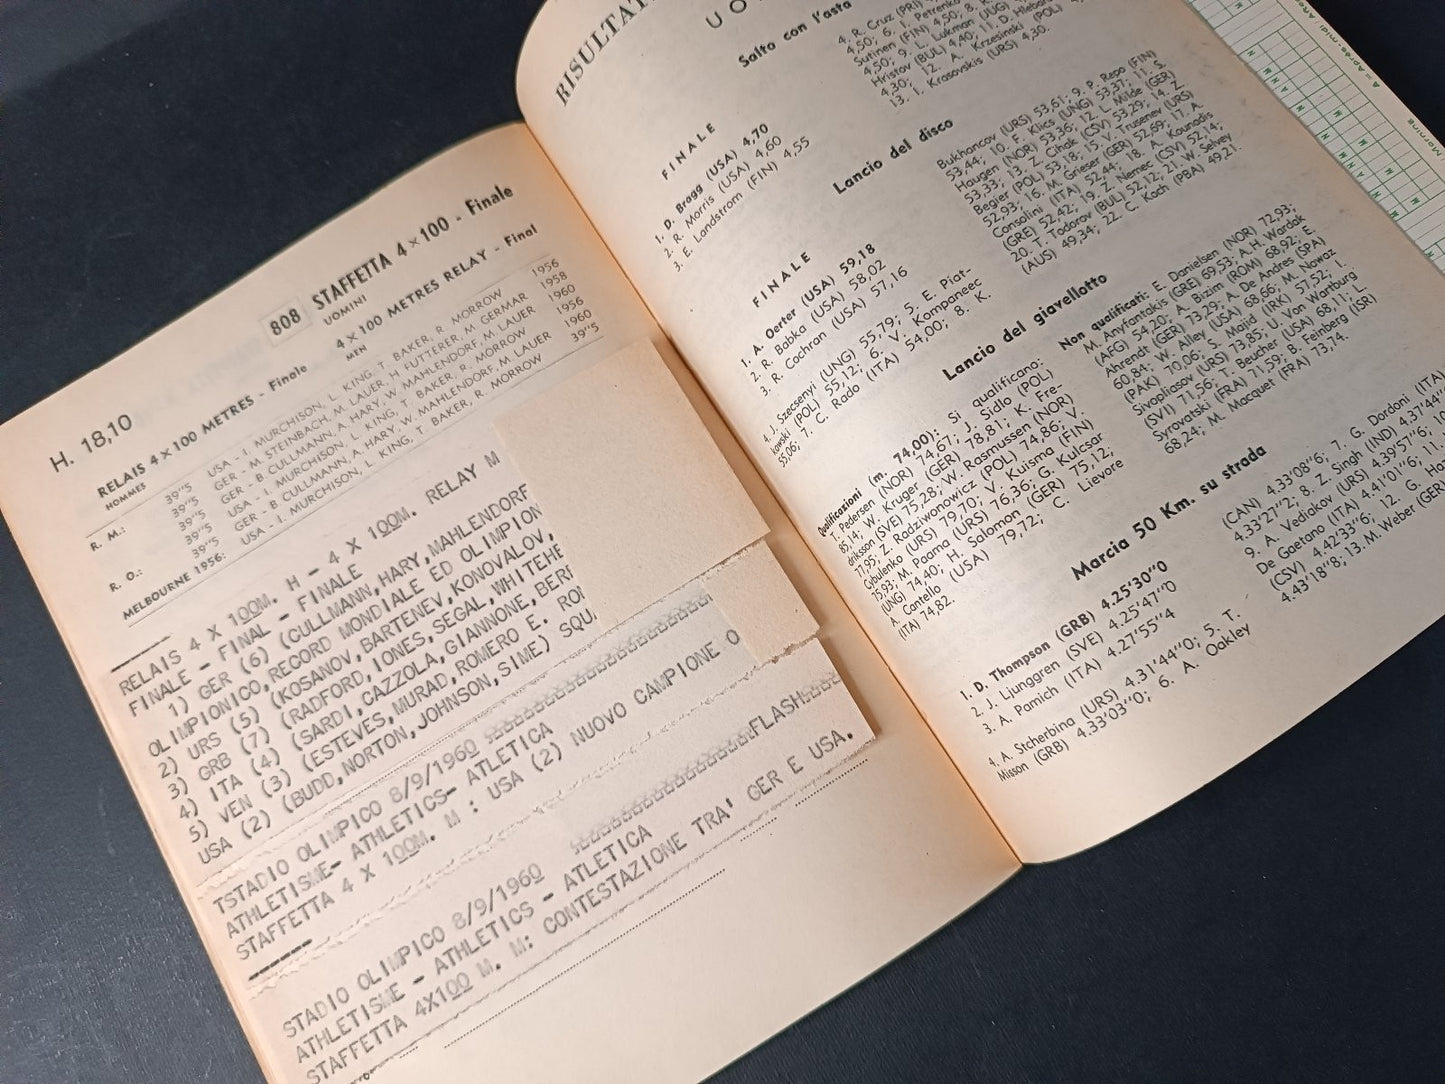 H. 18,10
808 STAFFETTA 4 × 100 - Finale
UOMINI
RELAIS 4 × 100 METRES - Finale 4 × 100 METRES RELAY - Final
HOMMES MEN
R. M.: 39"5 USA - I. MURCHISON, L. KING, T. BAKER, R. MORROW 1956
39"5 GER - M. STEINBACH, M. LAUER, H. FUTTERER, M. GERMAR 1958
39"5 GER - B. CULLMANN, A. HARY, W. MAHLENDORF, M. LAUER 1960
R. O.: 39"5 USA - I. MURCHISON, L. KING, T. BAKER, R. MORROW 1956
39"5 GER - B. CULLMANN, A. HARY, W. MAHLENDORF, M. LAUER 1960
MELBOURNE 1956: USA - I. MURCHISON, L. KING, T. BAKER, R. MORROW 39"5
RELAIS 4 X 100M. H - 4 X 100M. RELAY M
FINALE - FINAL - FINALE
1) GER (6) (CULLMANN,HARY,MAHLENDORF
OLIMPIONICO,RECORD MONDIALE ED OLIMPION
2) URS (5) (KOSANOV,BARTENEV,KONOVALOV,
3) GRB (7) (RADFORD,IONES,SEGAL,WHITEHE
4) ITA (4) (SARDI,CAZZOLA,GIANNONE,BERR
5) VEN (3) (ESTEVES,MURAD,ROMERO E. ROM
USA (2) (BUDD,NORTON,JOHNSON,SIME) SQU
TSTADIO OLIMPICO 8/9/1960
ATHLETISME- ATHLETICS- ATLETICA
STAFFETTA 4 X 100M. M : USA (2) NUOVO CAMPIONE O
FLASH
STADIO OLIMPICO 8/9/1960
ATHLETISME - ATHLETICS - ATLETICA
STAFFETTA 4X100 M. M: CONTESTAZIONE TRA' GER E USA.
RISULTA
UO
Salto con l'asta
FINALE
1. D. Bragg (USA) 4,70
2. R. Morris (USA) 4,60
3. E. Landstrom (FIN) 4,55
4. R. Cruz (PRI)
4,50; 6. I. Petrenko
Sutinen (FIN) 4,50; 8.
4,50; 9. L. Lukman (JUG)
Hristov (BUL) 4,40; 11. D. Hlebar
4,30; 12. A. Krzesinski (POL)
13. I. Krasovskis (URS) 4,30.
Lancio del disco
FINALE
1. A. Oerter (USA) 59,18
2. R. Babka (USA) 58,02
3. R. Cochran (USA) 57,16
4. J. Szecsenyi (UNG) 55,79; 5. E. Piat-
kowski (POL) 55,12; 6. V. Kompaneec
55,06; 7. C. Rado (ITA) 54,00; 8. K.
Bukhancov (URS) 53,61; 9. P. Repo (FIN)
53,44; 10. F. Klics (UNG) 53,37; 11. S.
Haugen (NOR) 53,36; 12. L. Milde (GER)
53,33; 13. Z. Cihak (CSV) 53,29; 14. Z.
Begier (POL) 53,18; 15. V. Trusenev (URS)
52,93; 16. M. Grieser (GER) 52,69; 17. A.
Consolini (ITA) 52,44; 18. A. Kounadis
(GRE) 52,42; 19. Z. Nemec (CSV) 52,14;
20. T. Todorov (BUL) 52,12; 21. W. Selvey
(AUS) 49,34; 22. C. Koch (PBA) 49,21.
Lancio del giavellotto
Qualificazioni (m. 74,00): Si qualificano:
T. Pedersen (NOR) 74,67; J. Sidlo (POL)
85,14; W. Kruger (GER) 78,81; K. Fre-
driksson (SVE) 75,28; W. Rasmussen (NOR)
77,95; Z. Radziwonowicz (POL) 74,86; V.
Cybulenko (URS) 79,70; V. Kuisma (FIN)
75,93; M. Paama (URS) 76,36; G. Kulcsar
(UNG) 74,40; H. Salomon (GER) 75,12;
A. Cantello (USA) 79,72; C. Lievore
(ITA) 74,82.
Non qualificati: E. Danielsen (NOR) 72,93;
M. Anyfantakis (GRE) 69,53; A.H. Wardak
(AFG) 54,20; A. Bizim (ROM) 68,92; E.
Ahrendt (GER) 73,29; A. De Andres (SPA)
60,84; W. Alley (USA) 68,66; M. Nawaz
(PAK) 70,06; S. Majid (IRK) 57,52; I.
Sivopliasov (URS) 73,85; U. Von Wartburg
(SVI) 71,56; T. Beucher (USA) 68,11; L.
Syrovatski (FRA) 71,59; B. Feinberg (ISR)
68,24; M. Macquet (FRA) 73,74.
Marcia 50 Km. su strada
1. D. Thompson (GRB) 4.25'30"0
2. J. Ljunggren (SVE) 4.25'47"0
3. A. Pamich (ITA) 4.27'55"4
4. A. Stcherbina (URS) 4.31'44"0; 5. T.
Misson (GRB) 4.33'03"0; 6. A. Oakley
(CAN) 4.33'08"6; 7. G. Dordoni (ITA)
4.33'27"2; 8. Z. Singh (IND) 4.37'44"
9. A. Vediakov (URS) 4.39'57"6; 10
De Gaetano (ITA) 4.41'01"6; 11.
(CSV) 4.42'33"6; 12. G. Har
4.43'18"8; 13. M. Weber (GER)
Morning
A = Après-midi